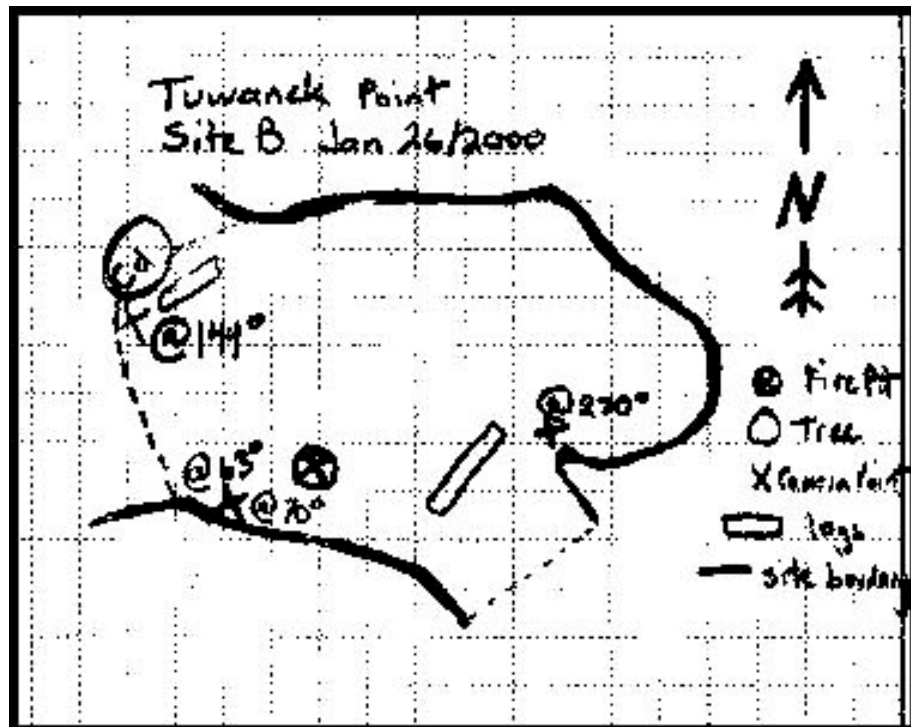 Tuwanek Point
Site B Jan 26/2000
N
Cd
@144°
@270°
@63°
@70°
Fire Pit
Tree
X Camera Point
logs
site boundary